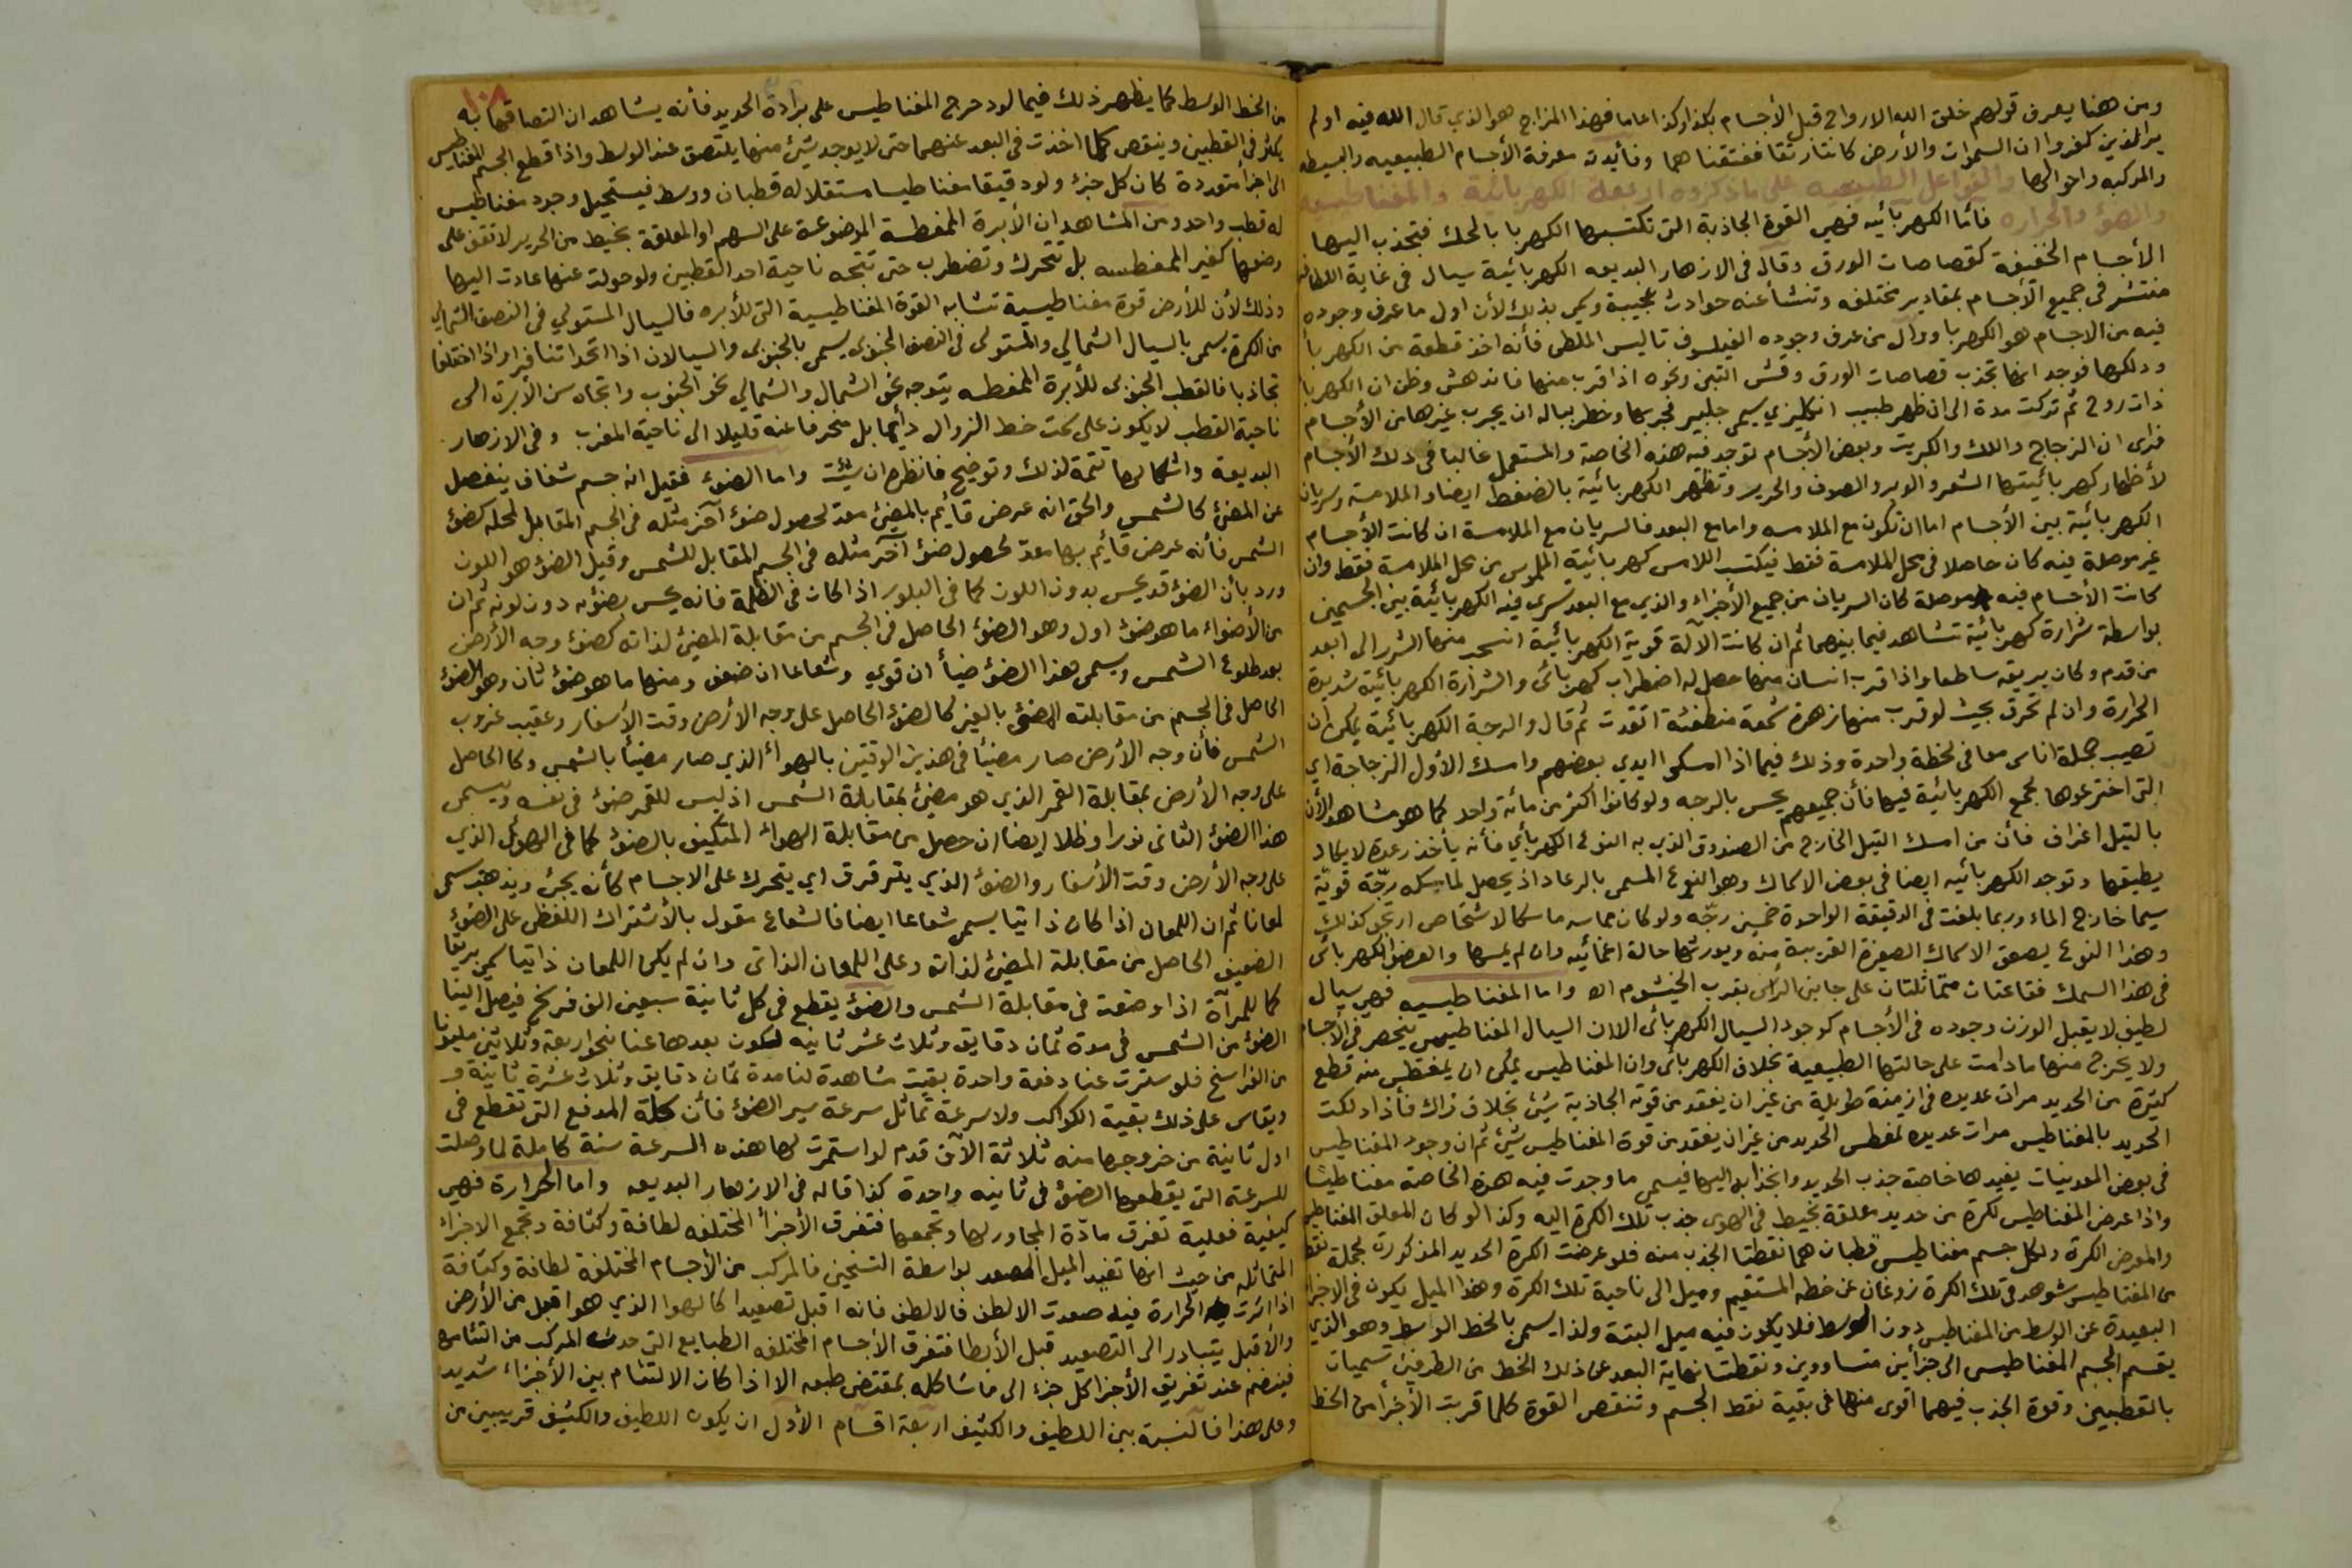 ومن هنا يعرف قولهم خلق الله الارواح قبل الأجسام بكذا وكذا عاما فهذا المزاج هو الذي قال الله فيه اولم
ير الذين كفروا ان السموات والأرض كانتا رتقا ففتقناهما وفائدته معرفة الأجسام الطبيعيه والبسيطه
والمركبه واحوالها والفواعل الطبيعيه على ماذكروه اربعة الكهربائية والمغناطيسيه
والضؤ والحراره فأما الكهربائيه فهي القوة الجاذبة التي تكتسبها الكهربا بالحك فتجذب اليها
الأجسام الخفيفة كقصاصات الورق وقال في الازهار البديعه الكهربائية سيال في غاية اللطافه
منتشر في جميع الأجسام بمقادير مختلفه وتنشأ عنه حوادث عجيبة وسمى بذلك لأن اول ما عرف وجوده
فيه من الاجسام هو الكهربا واول من عرف وجوده الفيلسوف تاليس الملطى فأنه اخذ قطعة من الكهربا
ودلكها فوجد انها تجذب قصاصات الورق وقش التبن ونحوه اذا قرب منها فاندهش وظن ان الكهربا
ذات روح ثم تركت مدة الى ان ظهر طبيب انكليزي يسمى جلبير فجربها وخطر بباله ان يجرب غيرها من الأجسام
فرأى ان الزجاج واللك والكبريت وبعض الأجسام توجد فيه هذه الخاصة والمستعمل غالبا في دلك الأجسام
لأظهار كهربائيتها الشعر والوبر والصوف والحرير وتظهر الكهربائية بالضغط ايضا والملامسة وسريان
الكهربائية بين الأجسام اما ان تكون مع الملامسه واما مع البعد فالسريان مع الملامسة ان كانت الأجسام
غير موصلة فيه كان حاصلا في محل الملامسة فقط فيكتسب اللامس كهربائية الملموس من محل الملامسة فقط وان
كانت الأجسام فيه موصلة كان السريان من جميع الأجزاء والذي مع البعد تسري فيه الكهربائية بين الجسمين
بواسطة شرارة كهربائية تشاهد فيما بينهما ثم ان كانت الآلة قوية الكهربائية انسحب منها الشرر الى ابعد
من قدم وكان بريقه ساطعا واذا قرب انسان منها حصل له اضطراب كهربائى والشرارة الكهربائية شديدة
الحرارة وان لم تحرق بحيث لو قرب منها زهرة شمعة منطفئة اتقدت ثم قال والرجة الكهربائية يمكن ان
تصيب جملة اناس معا في لحظة واحدة وذلك فيما اذا امسكوا ايدي بعضهم وامسك الأول الزجاجة اي
التي اخترعوها لجمع الكهربائية فيها فأن جميعهم يحس بالرجه ولو كانوا اكثر من مائة واحد كما هو مشاهد الأن
بالتيل اغراف فأن من امسك التيل الخارج من الصندوق الذي به النوع الكهربائي فأنه يأخذ رعدة لا يكاد
يطيقها وتوجد الكهربائيه ايضا في بعض الاسماك وهو النوع المسمى بالرعاد اذ يحصل لماسكه رجّة قويّة
سيما خارج الماء وربما بلغت في الدقيقة الواحدة خمسين رجّه ولو كان مماسه ماسكا لاشخاص ارتجو كذلك
وهذا النوع يصعق الاسماك الصغيرة القريبة منه ويورثها حالة اغمائيه وان لم يمسها والعضو الكهربائى
في هذا السمك فقاعتان متماثلتان على جانبى الرأس بقرب الخيشوم اه واما المغناطيسيه فهي سيال
لطيف لا يقبل الوزن وجوده في الأجسام كوجود السيال الكهربائى الا ان السيال المغناطيسي ينحصر في الأجسام
ولا يخرج منها مادامت على حالتها الطبيعية بخلاف الكهربائى وان المغناطيس يمكن ان يمغطس منه قطع
كثيرة من الحديد مرات عديده في ازمنة طويلة من غير ان يفقد من قوته الجاذبة شئ بخلاف ذاك فأذا دلكت
الحديد بالمغناطيس مرات عديده تمغطس الحديد من غير ان يفقد من قوة المغناطيس شئ ثم ان وجود المغناطيس
في بعض المعدنيات يفيدها خاصة جذب الحديد وانجذابه اليها فيسمى ما وجدت فيه هذه الخاصة مغناطيسًا
واذا عرض المغناطيس لكرة من حديد معلقة بخيط في الهوى جذب تلك الكرة اليه وكذا لو كان المعلق المغناطيس
والمعرض الكرة ولكل جسم مغناطيسى قطبان هما نقطتا الجذب منه فلو عرضت الكرة الحديد المذكورة لجملة نقط
من المغناطيس شوهد في تلك الكرة زوغان عن خطه المستقيم وميل الى ناحية تلك الكرة وهذا الميل يكون في الاجزاء
البعيدة عن الوسط من المغناطيس دون الوسط فلا يكون فيه ميل البتة ولذا يسمى بالخط الوسط وهو الذي
يقسم الجسم المغناطيسى الى جزأين متساووين ونقطتا نهاية البعد عن ذلك الخط من الطرفين تسميات
بالقطبين وقوة الجذب فيهما اقوى منها في بقية نقط الجسم وتنقص القوة كلما قربت الأجزأ من الخط
١٠٨
من الخط الوسط كما يظهر ذلك فيما لو دحرج المغناطيس على برادة الحديد فأنه يشاهد ان التصاقها به
يكثر في القطبين وينقص كلما اخذت في البعد عنهما حتى لا يوجد شئ منها يلتصق عند الوسط واذا قطع الجسم المغناطيس
الى اجزأ متعددة كان كل جزء ولو دقيقا مغناطيسا مستقلا له قطبان ووسط فيستحيل وجود مغناطيس
له قطب واحد ومن المشاهد ان الأبرة الممغطسة الموضوعة على السهم او المعلقة بخيط من الحرير لا تقف على
وضعها كغير الممغطسه بل تتحرك وتضطرب حتى تتجه ناحية احد القطبين ولو حولت عنها عادت اليها
وذلك لأن للأرض قوة مغناطيسية تشابه القوة المغناطيسية التى للأبره فالسيال المستولي في النصف الشمالي
من الكرة يسمى بالسيال الشمالي والمستولى في النصف الجنوبي يسمى بالجنوبى والسيالان اذا اتحدا تنافرا واذا اختلفا
تجاذبا فالقطب الجنوبى للأبرة الممغطسه يتوجه نحو الشمال والشمالي نحو الجنوب واتجاه سن الأبرة الى
ناحية القطب لا يكون على سمت خط الزوال دأيما بل منحرفا عنه قليلا الى ناحية المغرب وفى الازهار
البديعة واشكالها تتمة لذلك وتوضيح فانظره ان شئت واما الضوء فقيل انه جسم شفاف ينفصل
عن المضئ كالشمس والحق انه عرض قائم بالمضئ معدّ لحصول ضوء آخر مثله في الجسم المقابل لمحله كضؤ
الشمس فأنه عرض قائم بها معدّ لحصول ضوء آخر مثله في الجسم المقابل للشمس وقيل الضؤ هو اللون
ورد بأن الضؤ قد يحس بدون اللون كما في البلور اذا كان في الظلمة فانه يحس بضوئه دون لونه ثم ان
من الأضواء ما هو ضوء اول وهو الضوء الحاصل في الجسم من مقابلة المضئ لذاته كضوء وجه الأرض
بعد طلوع الشمس ويسمى هذا الضؤ ضيأ ان قوي وشعاعا ان ضعف ومنها ما هو ضوء ثان وهو الضوء
الحاصل في الجسم من مقابلته المضئ بالغير كالضوء الحاصل على وجه الأرض وقت الأسفار وعقيب غروب
الشمس فأن وجه الأرض صار مضيئًا في هذين الوقتين بالهواء الذي صار مضيئًا بالشمس وكالحاصل
على وجه الأرض بمقابلة القمر الذي هو مضئ بمقابلة الشمس اذ ليس للقمر ضوء في نفسه ويسمى
هذا الضوء الثانى نورا وظلا ايضا ان حصل من مقابلة الهواء المتكيف بالضوء كما في الهوئ الذي
على وجه الأرض وقت الأسفار والضوء الذي يترقرق اي يتحرك على الاجسام كأنه يجئ ويذهب يسمى
لمعانا ثم ان اللمعان اذا كان ذاتيا يسمى شعاعا ايضا فالشعاع مقول بالأشتراك اللفظى على الضوء
الضعيف الحاصل من مقابلة المضئ لذاته وعلى اللمعان الذاتى وان لم يكن اللمعان ذاتيا سمي بريقا
كما للمرآة اذا وضعت في مقابلة الشمس والضؤ يقطع في كل ثانية سبعين الف فرسخ فيصل الينا
الضوء من الشمس في مدة ثمان دقايق وثلاث عشر ثانيه لكون بعدها عنا نحو اربعة وثلاثين مليونا
من الفراسخ فلو سترت عنا دفعة واحدة بقيت مشاهدة لنا مدة ثمان دقايق وثلاث عشرة ثانية
ويقاس على ذلك بقية الكواكب ولا سرعة تماثل سرعة سير الضوء فأن كلة المدفع التى تقطع في
اول ثانية من خروجها منه ثلاثة الآف قدم لو استمرت لها هذه السرعة سنة كاملة لما وصلت
للسرعة التي يقطعها الضوء في ثانيه واحدة كذا قاله في الازهار البديعه واما الحرارة فهي
كيفية فعلية تفرق مادّة المجاور لها وتجمعها فتفرق الأجزأ المختلفه لطافة وكثافة وتجمع الاجزاء
المتماثله من حيث انها تفيد الميل المصعد بواسطة التسخين فالمركب من الأجسام المختلفة لطافة وكثافة
اذا اثرت الحرارة فيه صعدت الالطف فالالطف فانه اقبل تصعيدا كالهوا الذي هو اقبل من الأرض
والأقبل يتبادر الى التصعيد قبل الأبطا فتفرق الأجسام المختلفه الطبايع التى حدث المركب من التئامها
فينضم عند تفريق الأجزا كل جزء الى ما شاكله بمقتضى طبعه الا اذا كان الالتئام بين الأجزاء شديد
وعلى هذا فالنسبة بين اللطيف والكثيف اربعة اقسام الأول ان يكون اللطيف والكثيف قريبين من